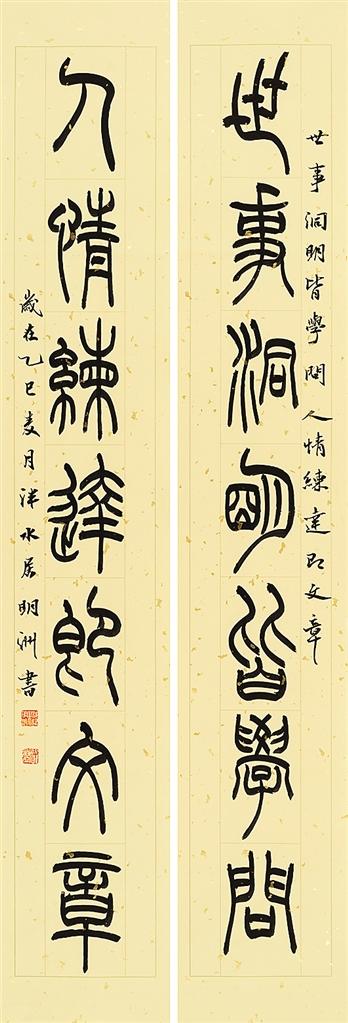 世事洞明皆學問人情練達即文章
世事洞明皆學問
人情練達即文章
歲在乙巳麦月泮水居明洲書